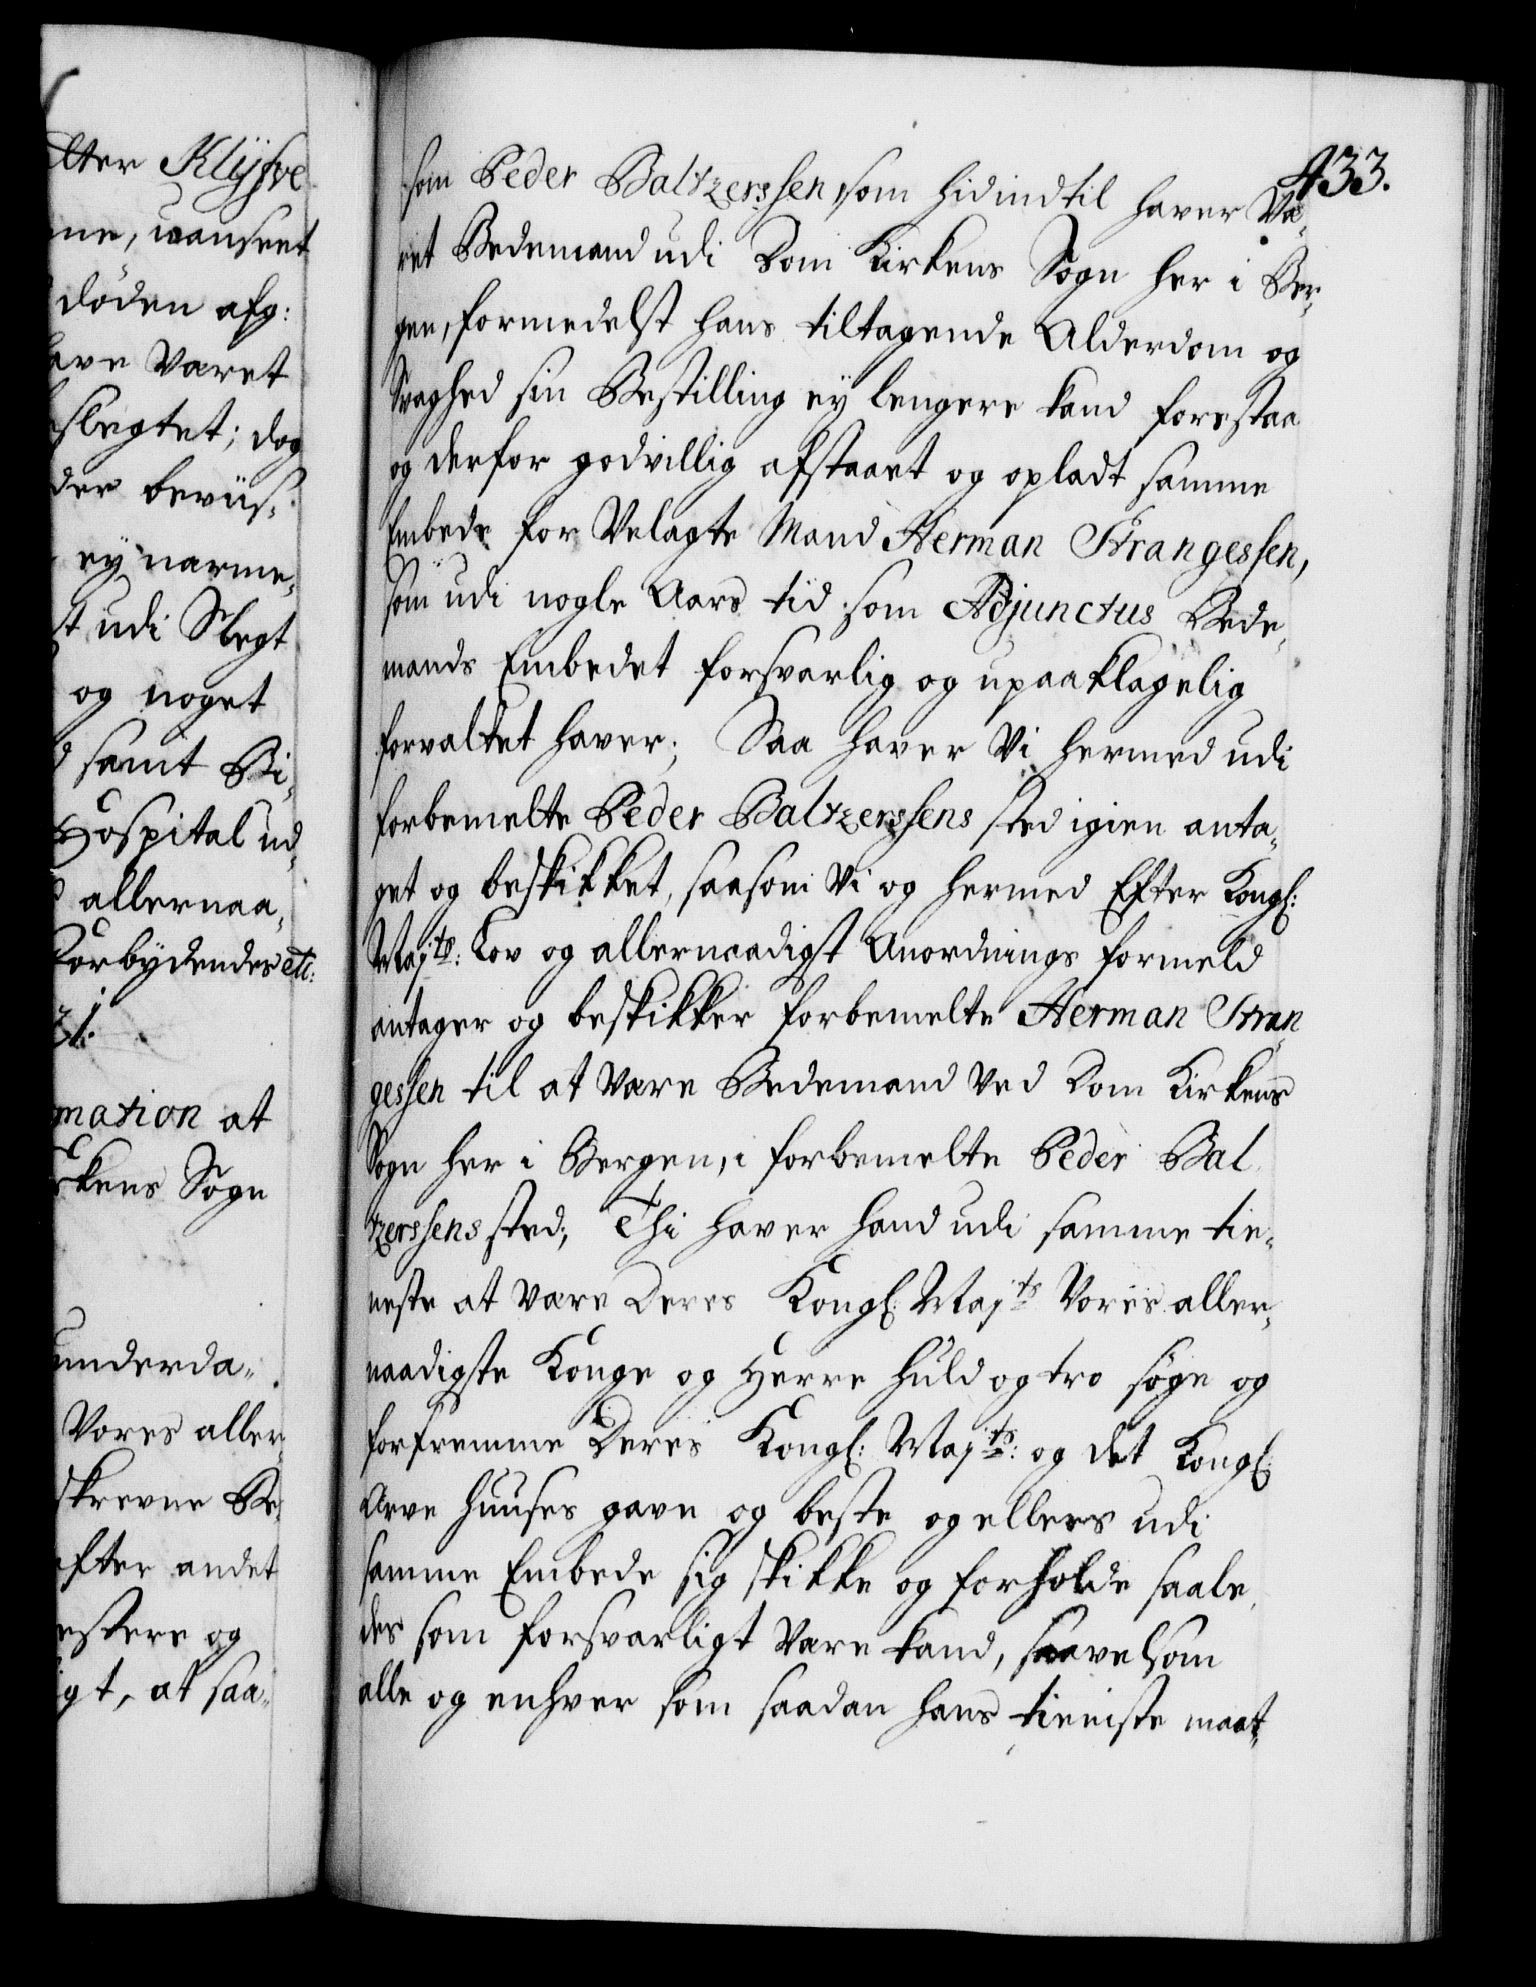 ter Klÿfve
ne, uanseet
döden afg:
ave været
slegtet; dog
der beviis,
ey nærme,
st udi Slegt
og noget
samt Bi,
Hospital ud,
allernaa,
Forbydendes etc:
31.
mation at
rkens Sogn
underda,
Vores aller,
skrevne Be,
efter andet
estere og
gt, at saa,
433.
som Peder Baltzerssen, som hidindtil haver Væ,
ret Bedemand udi Dom Kirkens Sogn her i Ber,
gen, formedelst hans tiltagende Alderdom og
Svaghed sin Bestilling ey lengere kand forestaa
og derfor godvillig afstaaet og opladt samme
Embede for Velagte Mand Herman Strangessen,
som udi nogle Aars tid som Adjunctus Bede,
mands Embedet forsvarlig og upaaklagelig
forvaltet haver; Saa haver Vi hermed udi
forbemelte Peder Baltzerssens sted igien anta,
get og beskikket, saasom Vi og hermed Efter Kongl:
Majts: Lov og allernaadigst Anordnings formeld
antager og beskikker forbemelte Herman Stran
gessen til at være Bedemand ved Dom Kirkens
Sogn her i Bergen, i forbemelte Peder Bal
tzerssens sted; Thi haver hand udi samme tie,
neste at være Deres Kongl: Majts Voris aller,
naadigste Konge og Herre huld og tro söge og
forfremme Deris Kongl: Majts: og det Kongl:
Arve huuses gavn og beste og ellers udi
samme Embede sig skikke og forholde saale,
des som forsvarligt være kand, saavelsom
alle og enhver som saadan hans tieniste maat,